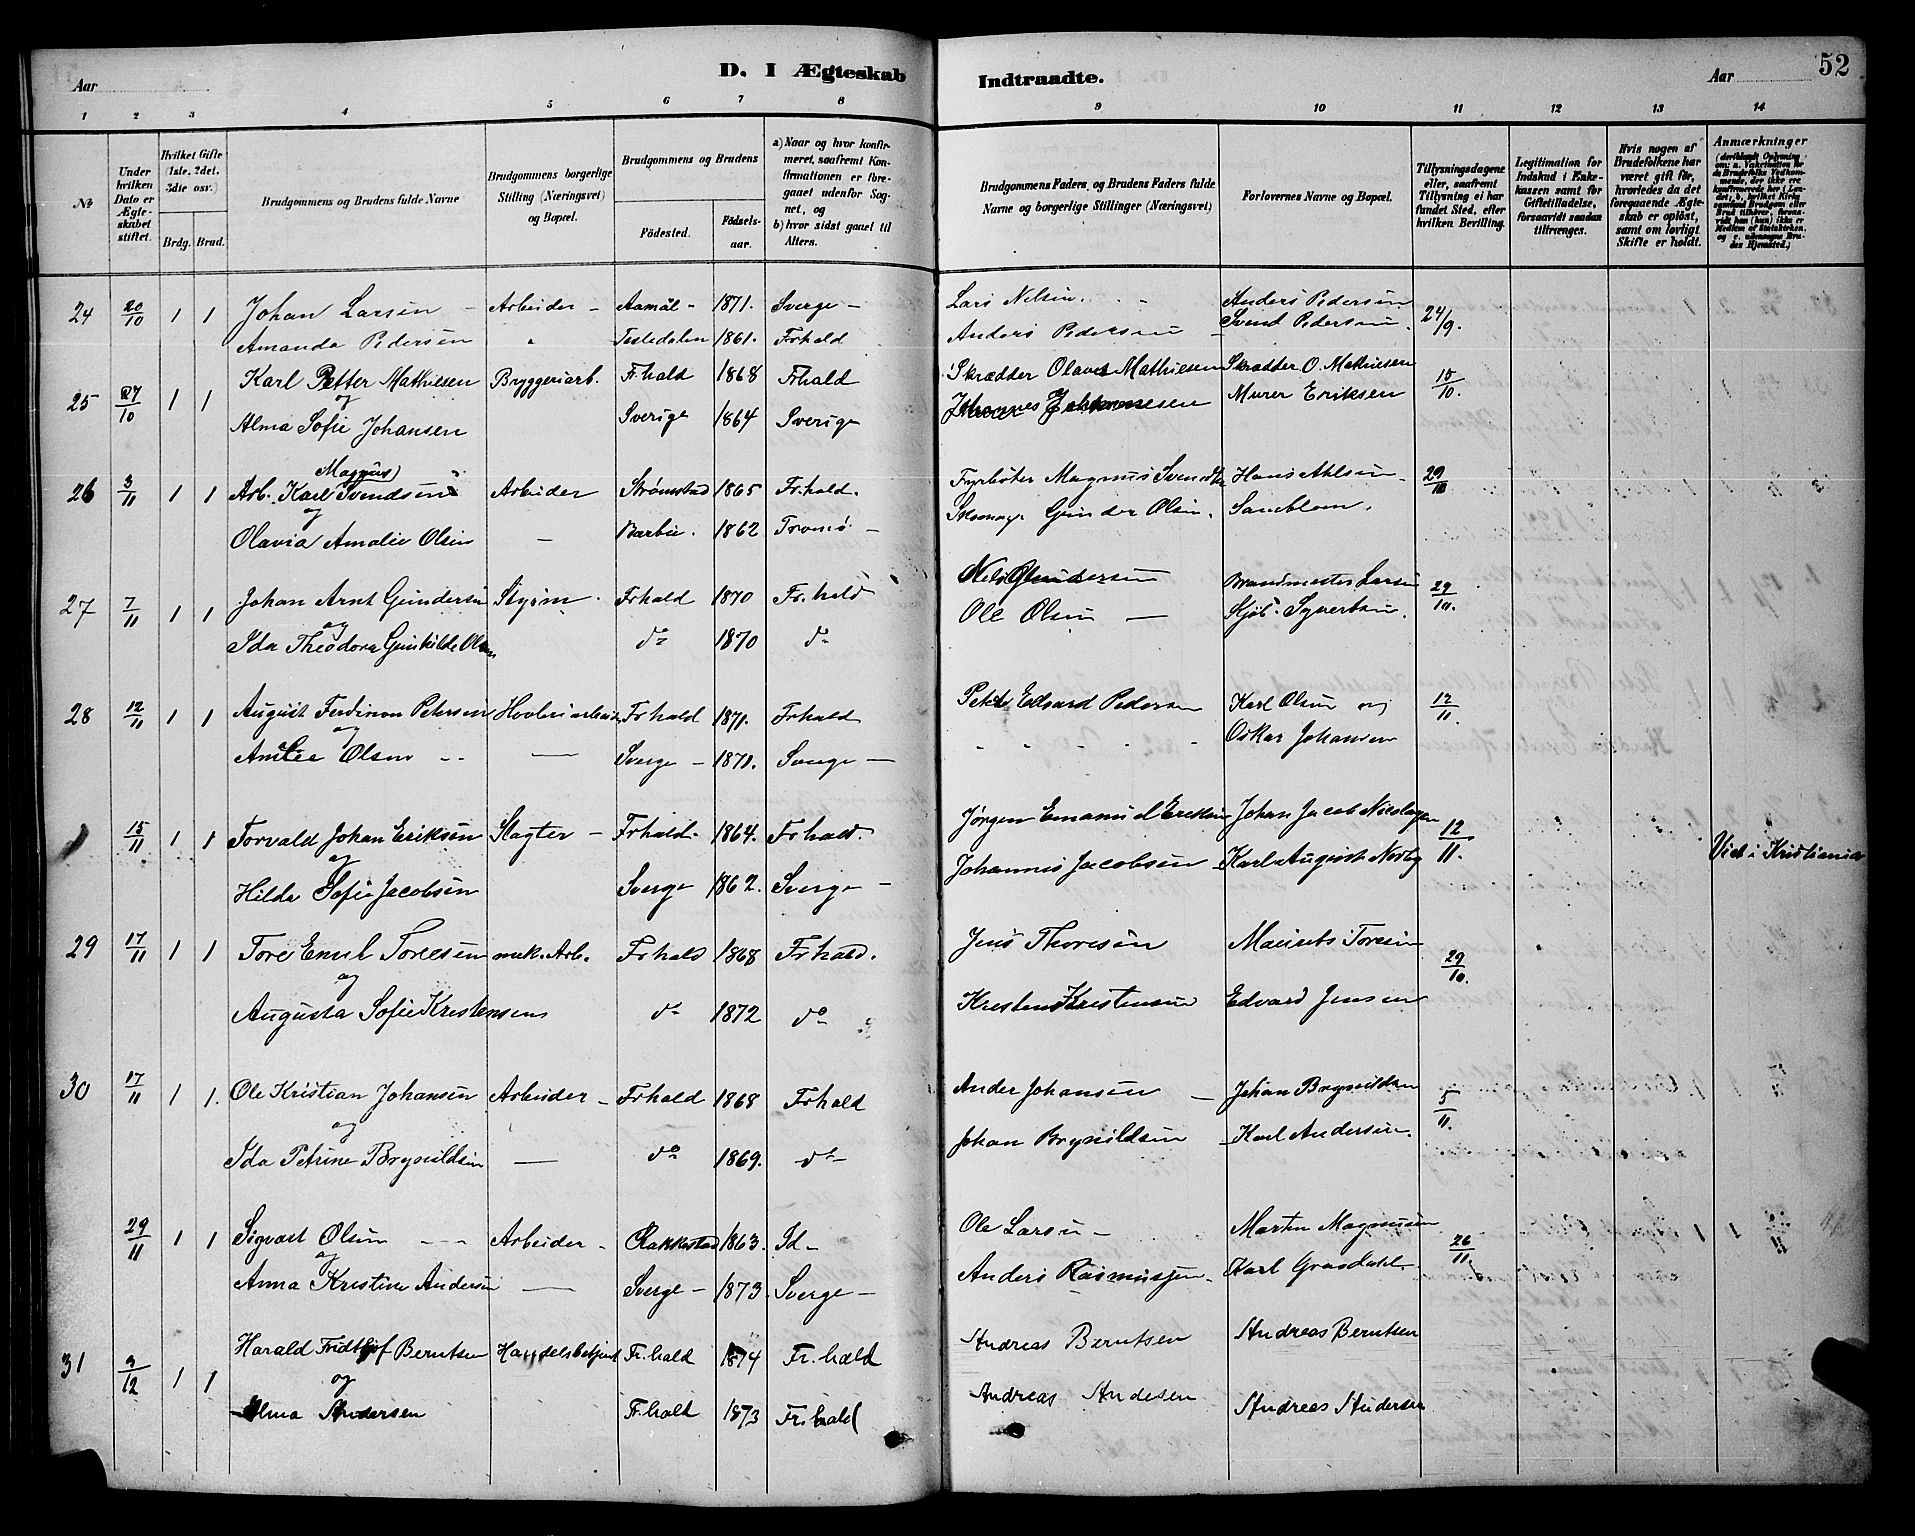 Aar
D. I Ægteskab Indtraadte.
Aar
52
1 2 3 4 5 6 7 8 9 10 11 12 13 14
No
Under hvilken Dato er Ægteskabet stiftet.
Hvilket Gifte (1ste, 2det, 3die osv.)
Brdg. Brud.
Brudgommens og Brudens fulde Navne
Brudgommens borgerlige Stilling (Næringsvei) og Bopæl.
Brudgommens og Brudens
Födested.
Födselsaar.
a) Naar og hvor konfirmeret, saafremt Konfirmationen er foregaaet udenfor Sognet, og
b) hvor sidst gaaet til Alters.
Brudgommens Faders, og Brudens Faders fulde Navne og borgerlige Stillinger (Næringsvei)
Forlovernes Navne og Bopæl.
Tillysningsdagene eller, saafremt Tillysning ei har fundet Sted, efter hvilken Bevilling.
Legitimation for Indskud i Enkekassen samt for Giftetilladelse, forsaavidt saadan tiltrænges.
Hvis nogen af Brudefolkene har været gift før, hvorledes da det foregaaende Ægteskab er oplöst, samt om lovligt Skifte er holdt.
Anmærkninger
24 20/10 1 1 Johan Larsen - Arbeider - Aamål - 1871. Sverge - Lars Nelsen. Anders Pedersen 24/9.
Amanda Pedersen " Tistedalen 1861. Frhald Anders Pedersen Svend Pedersen.
25 27/10 1 1 Karl Petter Mathiesen Bryggeriarb. Fr.hald 1868 Frhald Skrædder Olaves Mathiesen Skrædder O. Mathiesen 15/10.
og
Alma Sofie Johansen Sverige 1864 Sverige Johannes Johannesen Murer Eriksen
Magnus
26 3/11 1 1 Arb. Karl Svendsen Arbeider Strømstad 1865 Fr.hald. Fyrbøter Magnus Svendsen Hans Ahlsen 29/10
og
Olavia Amalie Olsen - Barbu. 1862 Tromø - Gunder Olsen. Sandblom.
27 7/11 1 1 Johan Arnt Gundersen Frhald 1870 Fr.hald Nels Gundersen Brandmester Larsen 29/10.
og
Ida Theodora Gunhilde Olsen do 1870 do Ole Olsen - Syvertsen.
28 12/11 1 1 August Ferdinan Petersen Høvleriarbeid Frhald 1871. Frhald Peter Edvard Pedersen Karl Olsen og 12/11.
og
Amalie Olsen - - Sverge - 1871. Sverge - Oskar Johansen
15/11 1 1 Torvald Johan Eriksen Slagter - Frhald. 1864. Frhald. Jørgen Emanuel Eriksen Johan Jacob Nicolaysen 12/11. Viet i Kristiania
og
Hilda Sofie Jacobsen Sverge 1862. Sverge - Johannes Jacobsen - Karl August Norby
29 17/11 1 1 Tore Emil Toresen mek. Arb. Frhald 1868 Frhald. Jens Thoresen Maurits Toresen 29/10.
og
Augusta Sofie Kristensens do 1872 do Kristen Kristensen Edvard Jensen
30 17/11 1 1. Ole Kristian Johansen Arbeider - Frhald 1868 Frhald Ander Johansen - Johan Brynildsen 5/11.
og
Ida Petrine Brynildsen - do 1869. do Johan Brynildsen - Karl Andersen.
29/11 1 1 Sigvart Olsen - - - Arbeider - Rakkestad 1863. Id - Ole Larsen - Martin Magnusen 26/11.
og
Anna Kristine Andersen - Sverge - 1873. Sverge - Anders Rasmussen. Karl Grasdahl.
31 3/12 1 1 Harald Fridthjof Berntsen Handelsbetjent Fr.hald 1874 Fr.hald Andreas Berntsen Andreas Berntsen
og
Alma Andersen Fr.hald 1873 Fr.hald Andreas Andesen Andreas Andersen